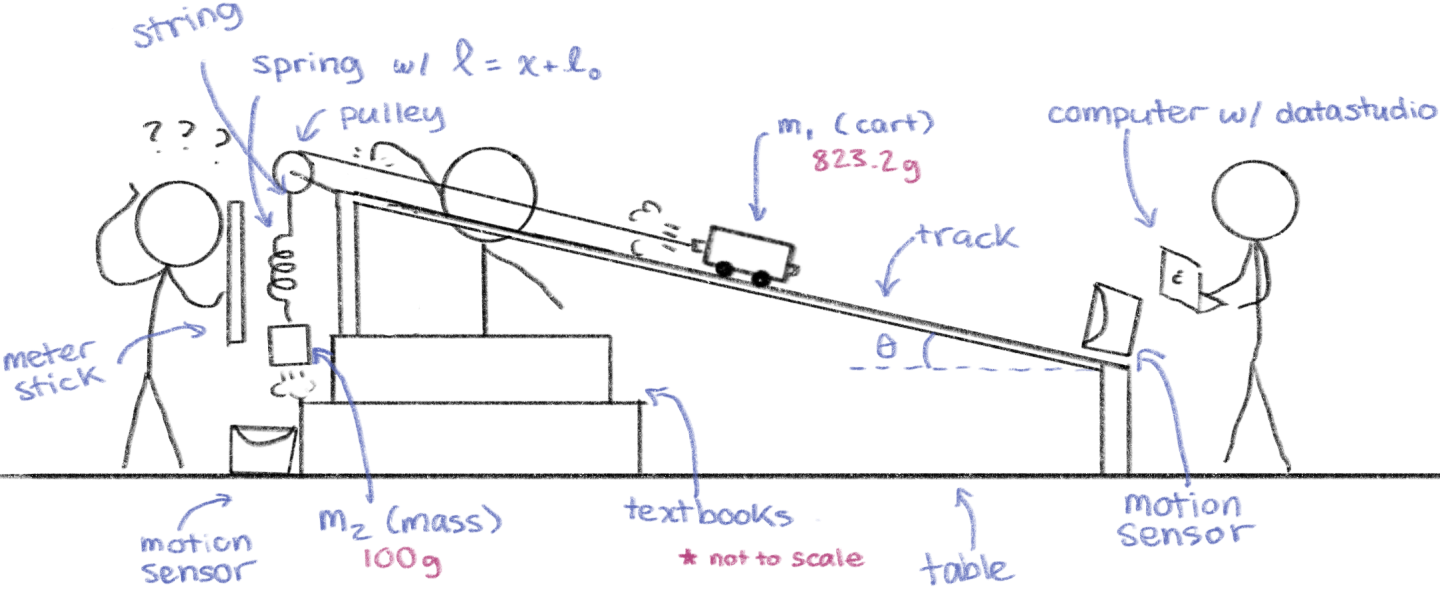 string
spring w/ l = x + l₀
pulley
? ? ?
m₁ (cart)
823.2g
computer w/ datastudio
track
ε
θ
meter
stick
motion
sensor
m₂ (mass)
100g
textbooks
* not to scale
table
motion
sensor